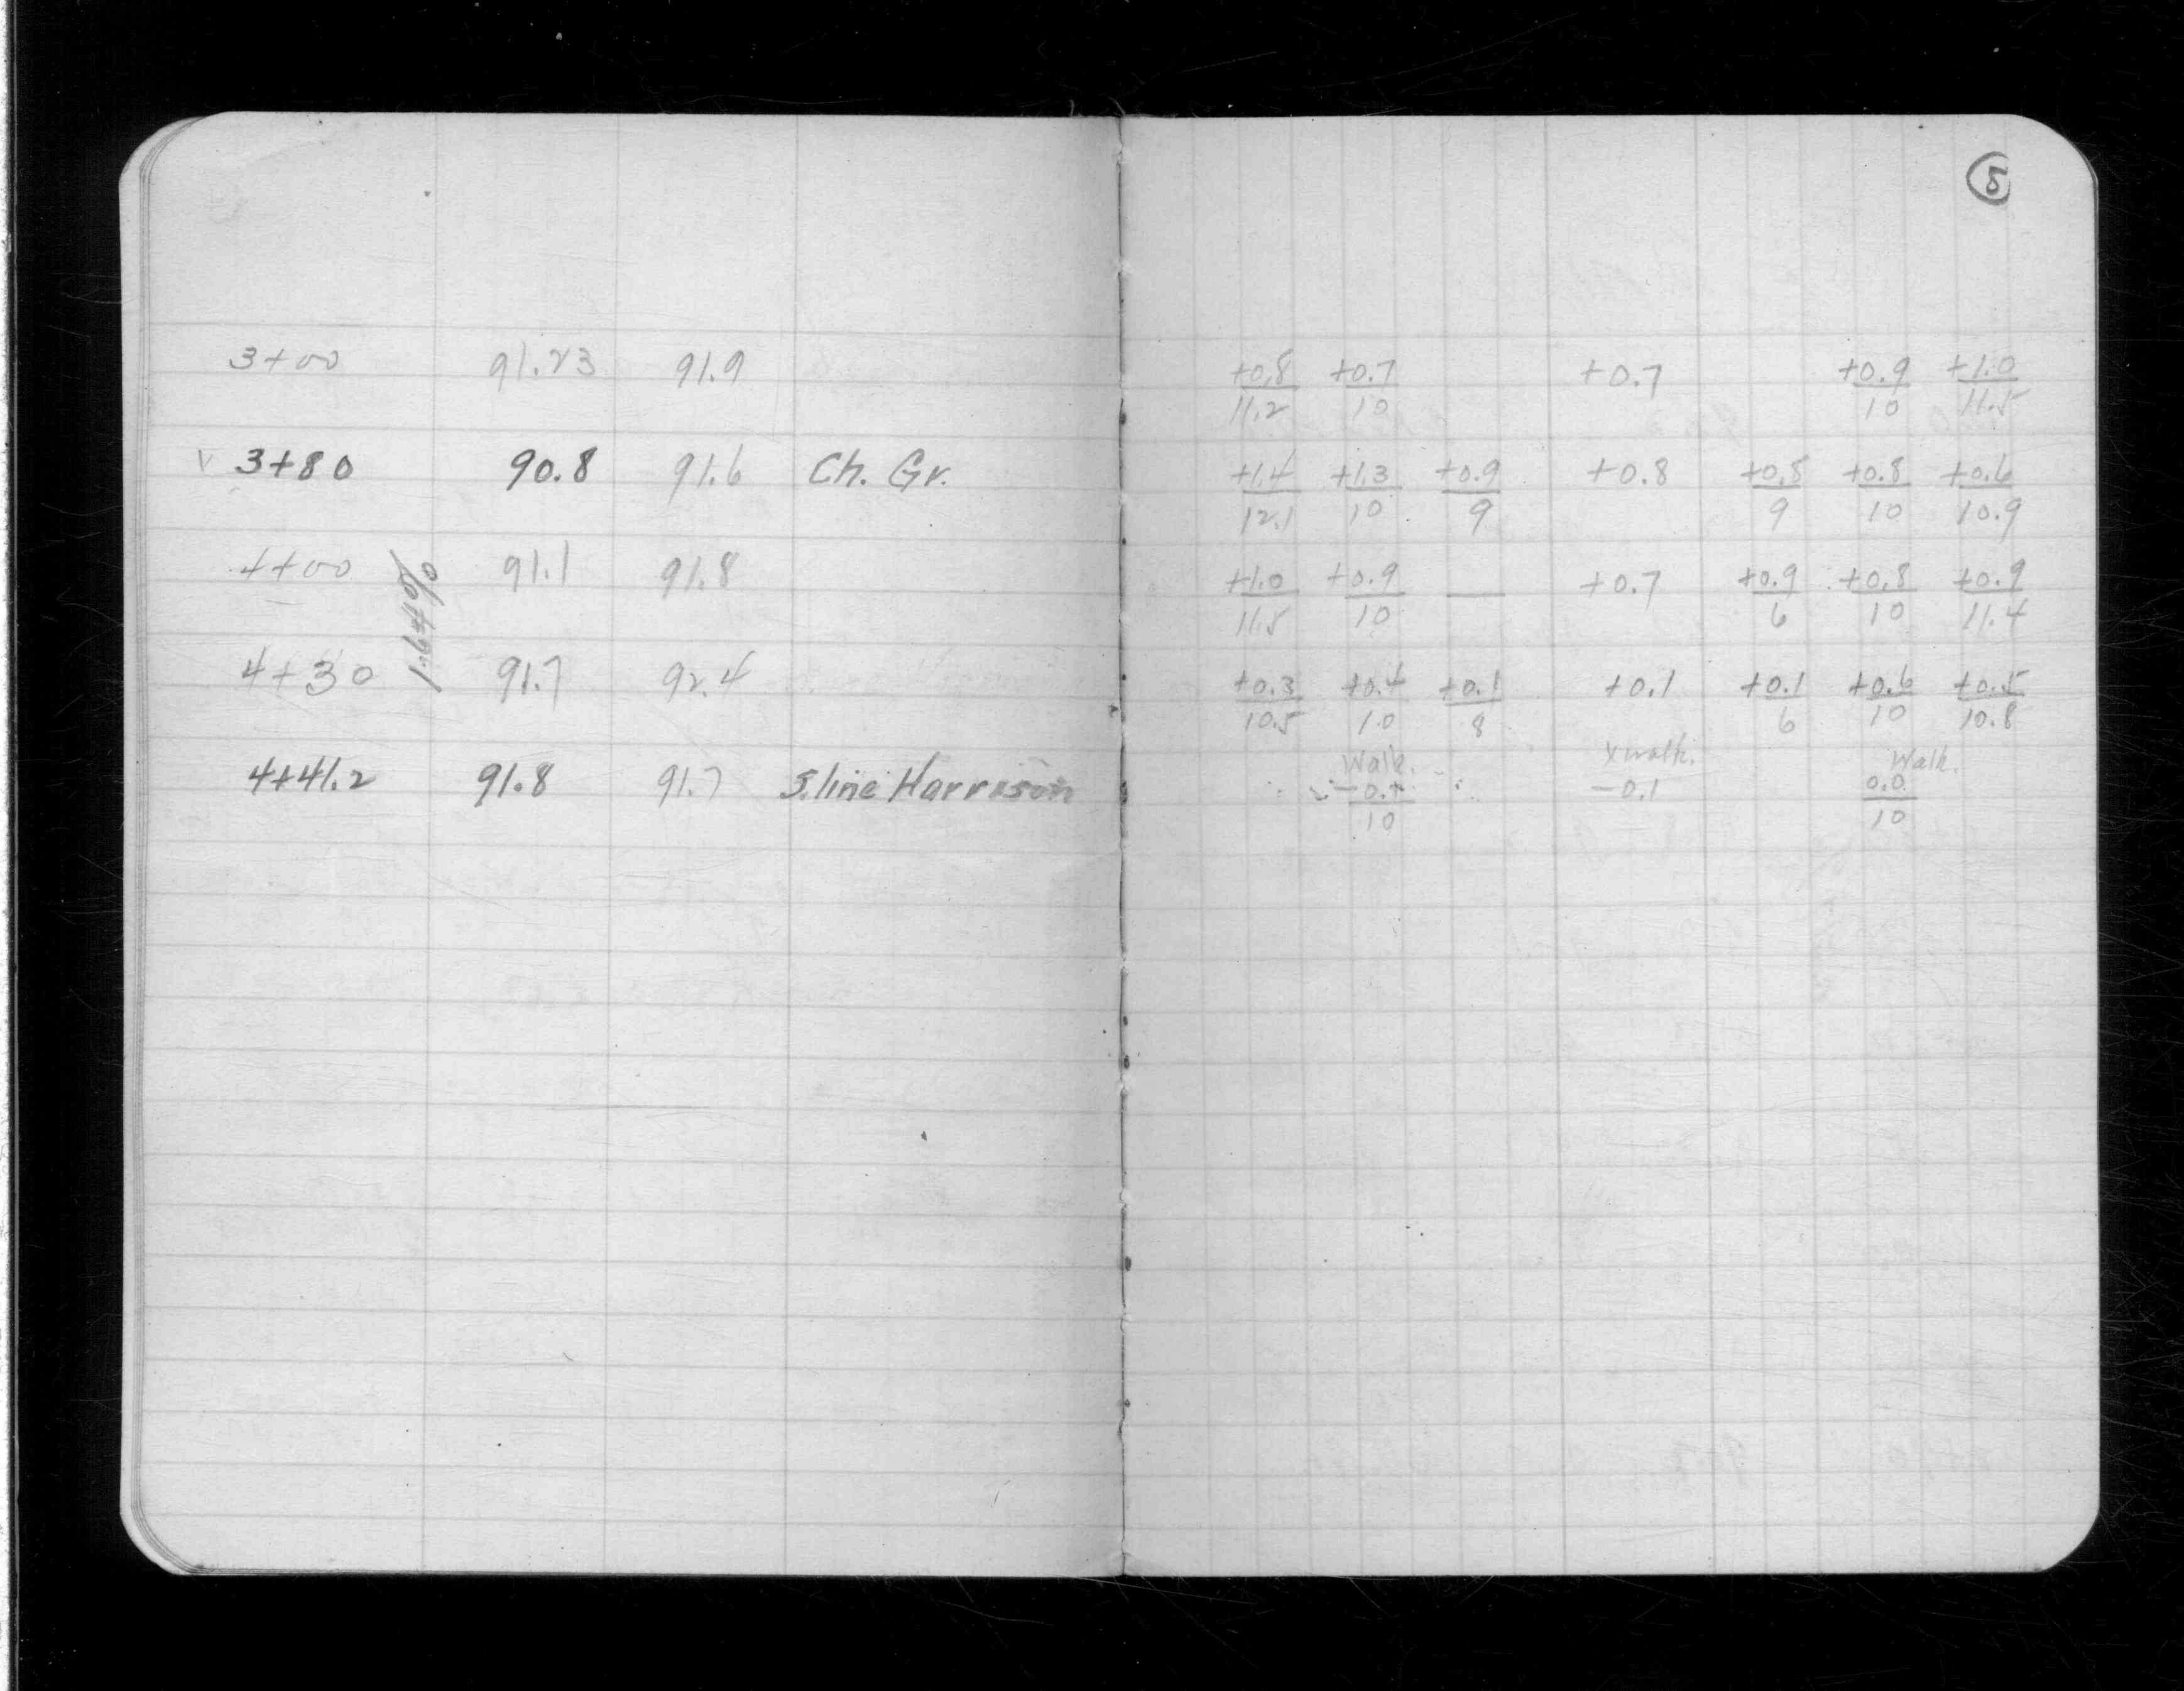 5
3+00 91.23 91.9 +0.8 +0.7 +0.7 +0.9 +1.0
11.2 10 10 11.5
v 3+80 90.8 91.6 Ch. Gr. +1.4 +1.3 +0.9 +0.8 +0.8 +0.8 +0.6
12.1 10 9 9 10 10.9
4+00 91.1 91.8 +1.0 +0.9 — +0.7 +0.9 +0.8 +0.9
11.5 10 6 10 11.4
1.64%
4+30 91.7 92.4 +0.3 +0.4 +0.1 +0.1 +0.1 +0.6 +0.5
10.5 10 8 6 10 10.8
Walk. xwalk. Walk.
4+41.2 91.8 91.7 S. line Harrison -0.1 0.0
10 10